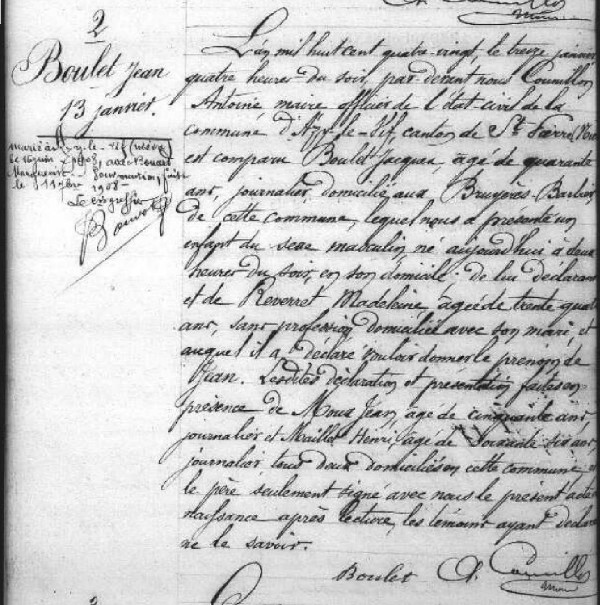 2
Boulet Jean
13 janvier.
marié à Azy-le-Vif (nièvre)
le 16 juin 1908, avec
le
Le Greffier
L'an mil huit cent quatre-vingt, le treize janvier
quatre heures du soir, par devant nous Camillon
Antoine maire officier de l'état civil de la
commune d'Azy-le-Vif, canton de St Pierre
est comparu Boulet Jacques, âgé de quarante
ans, journalier, domicilié aux Bruyères-Barbier
de cette commune, lequel nous a présenté un
enfant du sexe masculin, né aujourd'hui à deux
heures du soir, en son domicile; de lui déclarant
et de Reverret Madeleine, âgée de trente quatre
ans, sans profession domiciliée avec son mari, et
auquel il a déclaré vouloir donner le prénom de
Jean. Lesdites déclaration et présentation faites en
présence de Jean, âgé de cinquante ans,
journalier et Maillot Henri, âgé de soixante six ans,
journalier tous deux domiciliés en cette commune, et
le père seulement signé avec nous le présent acte
naissance après lecture, les témoins ayant déclaré
ne le savoir.
Boulet